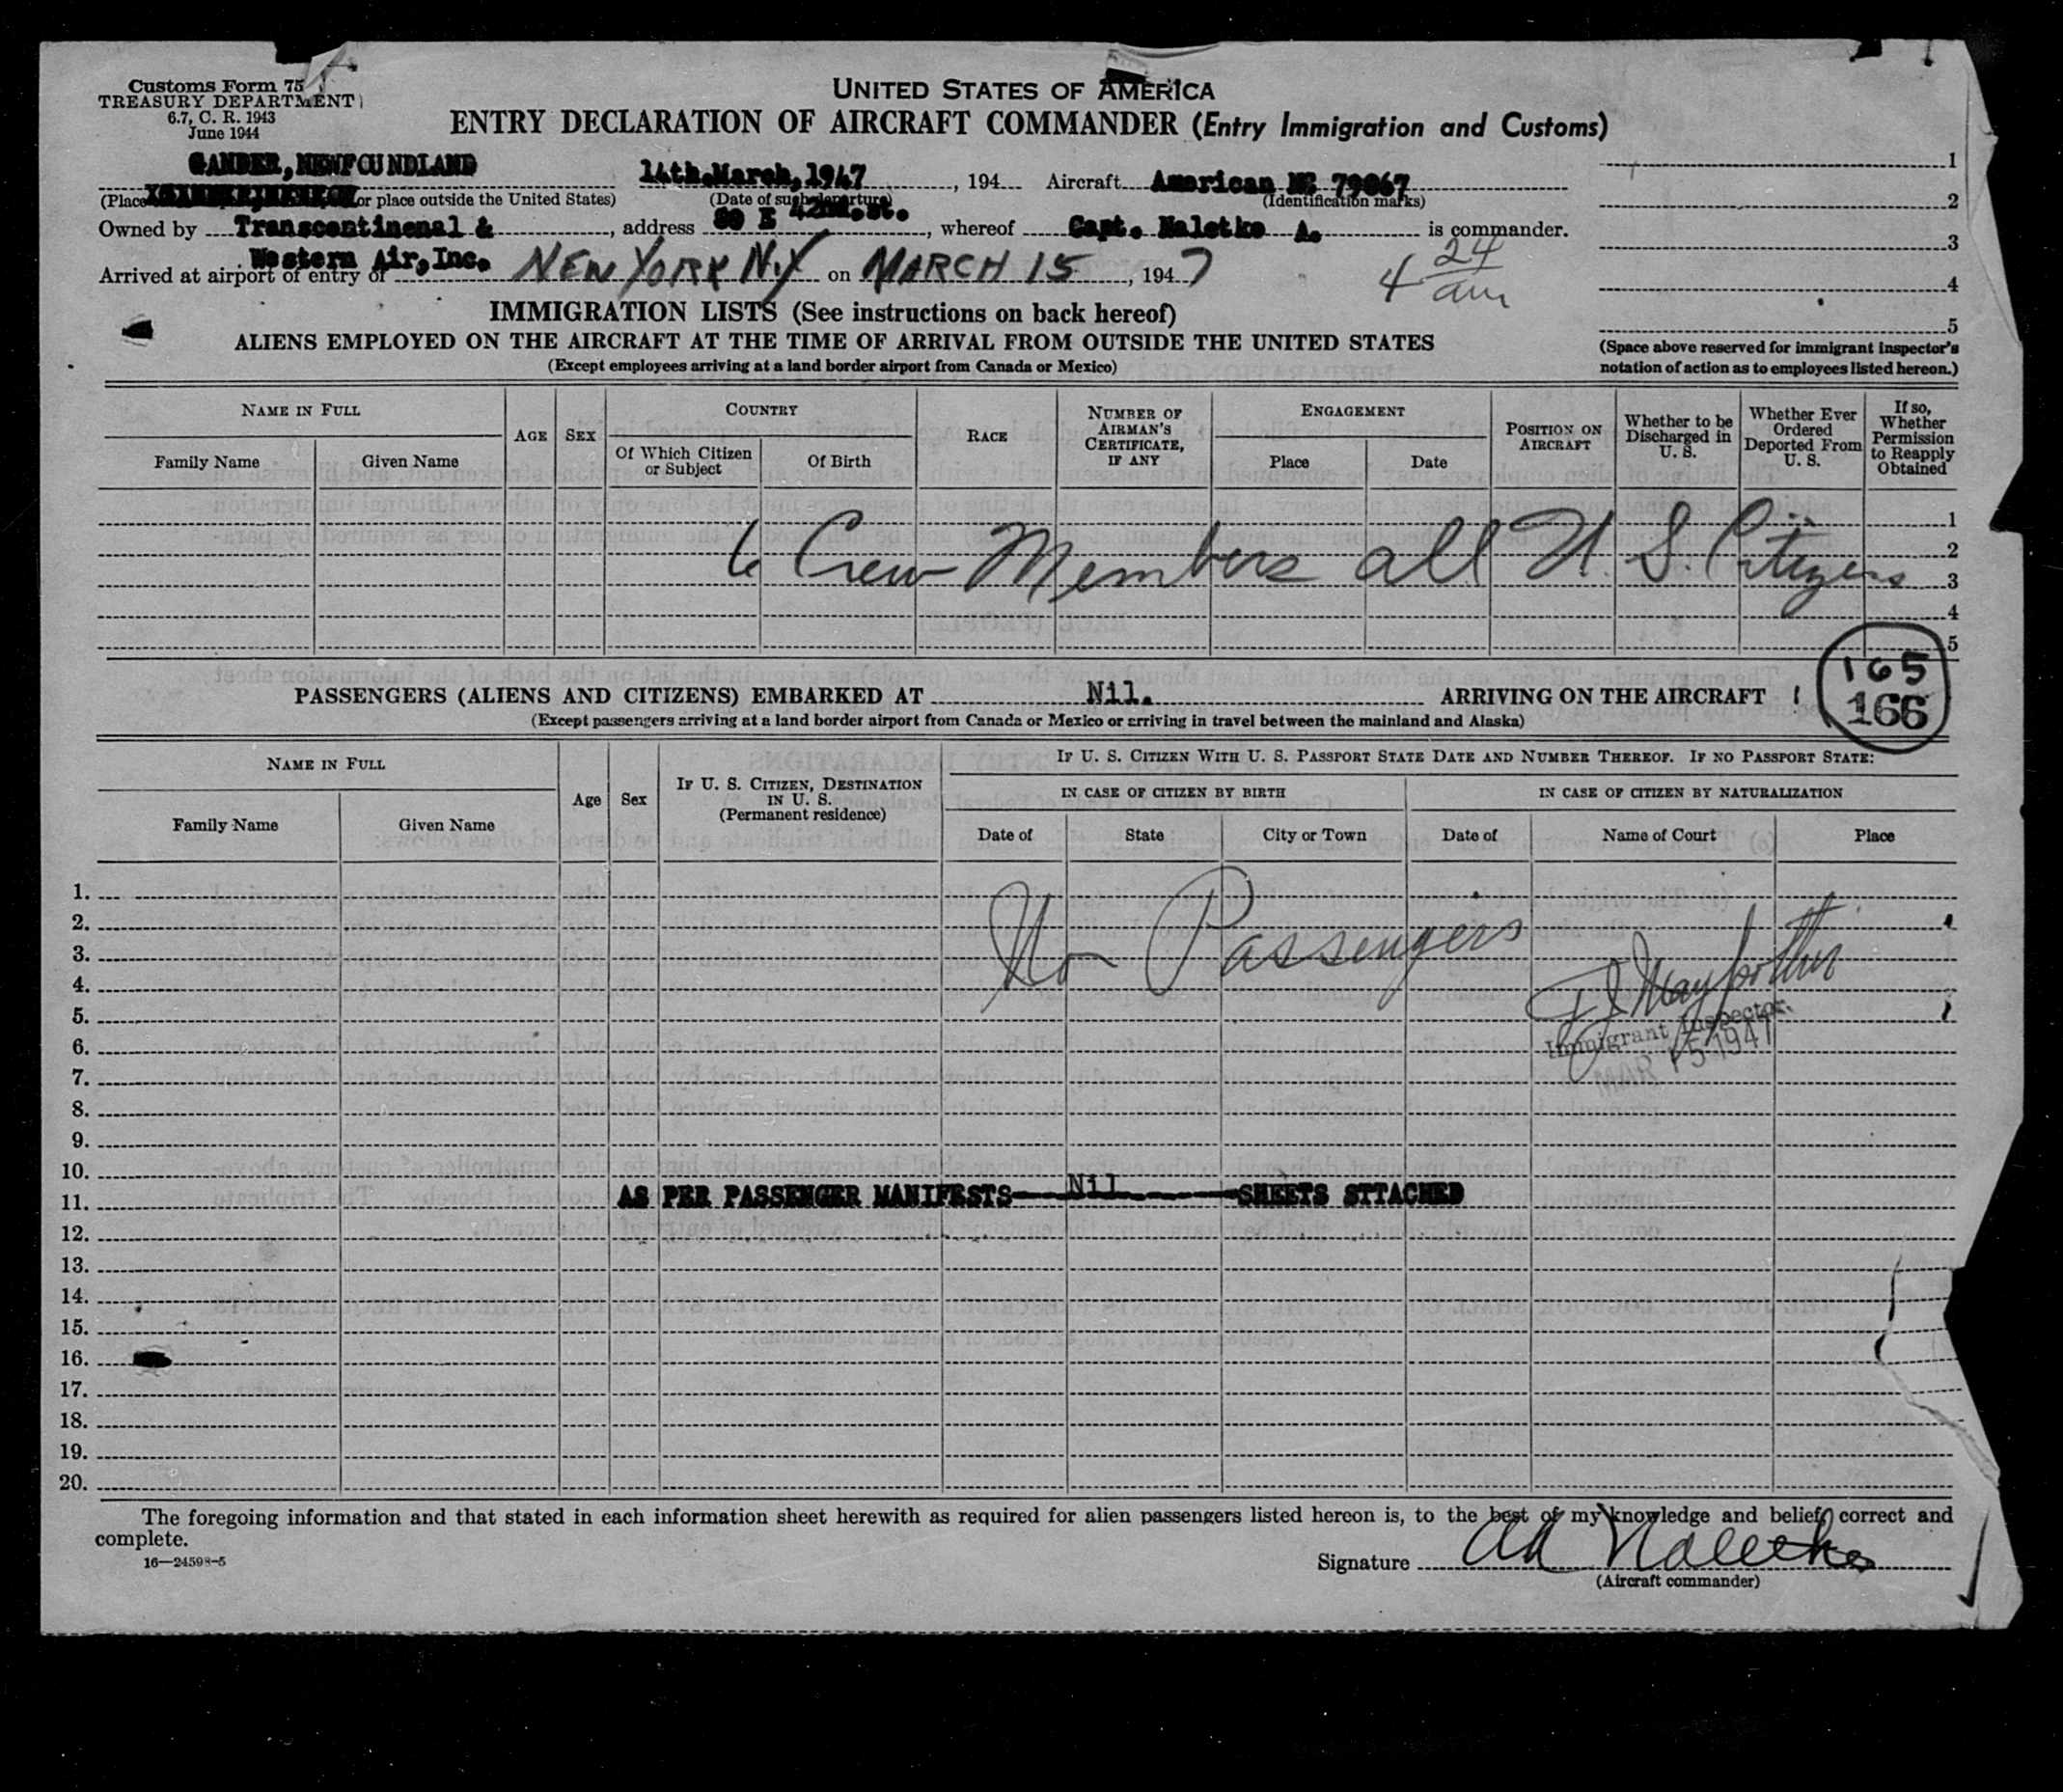 Customs Form 75
TREASURY DEPARTMENT
6.7, C. R. 1943
June 1944
UNITED STATES OF AMERICA
ENTRY DECLARATION OF AIRCRAFT COMMANDER (Entry Immigration and Customs)
GANDER, NEWFOUNDLAND 14th.March,1947, 194 Aircraft American NC 79067
(Place or place outside the United States) (Date of such departure) (Identification marks)
Owned by Transcontinenal & , address 80 E 42nd.st. , whereof Capt. Naletko A. is commander.
Western Air,Inc.
Arrived at airport of entry of NEW YORK N.Y on MARCH 15, 1947 4 24 am
1
2
3
4
5
(Space above reserved for immigrant inspector's
notation of action as to employees listed hereon.)
IMMIGRATION LISTS (See instructions on back hereof)
ALIENS EMPLOYED ON THE AIRCRAFT AT THE TIME OF ARRIVAL FROM OUTSIDE THE UNITED STATES
(Except employees arriving at a land border airport from Canada or Mexico)
NAME IN FULL
Family Name Given Name
AGE SEX
COUNTRY
Of Which Citizen or Subject Of Birth
RACE
NUMBER OF AIRMAN'S CERTIFICATE, IF ANY
ENGAGEMENT
Place Date
POSITION ON AIRCRAFT
Whether to be Discharged in U. S.
Whether Ever Ordered Deported From U. S.
If so, Whether Permission to Reapply Obtained
1
2
6 Crew Members all U.S. Citizens 3
4
5
165
166
PASSENGERS (ALIENS AND CITIZENS) EMBARKED AT Nil. ARRIVING ON THE AIRCRAFT
(Except passengers arriving at a land border airport from Canada or Mexico or arriving in travel between the mainland and Alaska)
NAME IN FULL
Family Name Given Name
Age Sex
IF U. S. CITIZEN, DESTINATION IN U. S. (Permanent residence)
IF U. S. CITIZEN WITH U. S. PASSPORT STATE DATE AND NUMBER THEREOF. IF NO PASSPORT STATE:
IN CASE OF CITIZEN BY BIRTH IN CASE OF CITIZEN BY NATURALIZATION
Date of State City or Town Date of Name of Court Place
1.
2.
3. No Passengers
4.
5.
Immigrant Inspector
6.
MAR 15 1947
7.
8.
9.
10.
11. AS PER PASSENGER MANIFESTS---Nil---SHEETS STTACHED
12.
13.
14.
15.
16.
17.
18.
19.
20.
The foregoing information and that stated in each information sheet herewith as required for alien passengers listed hereon is, to the best of my knowledge and belief, correct and
complete.
16—24598-5
Signature
(Aircraft commander)